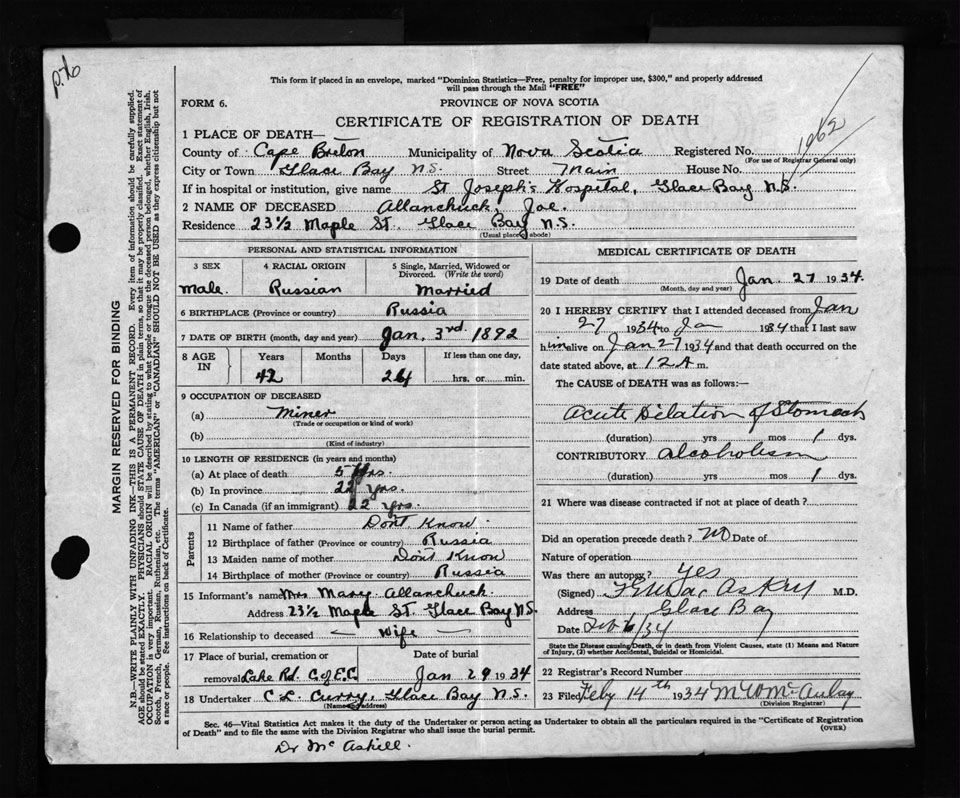 p.to
This form if placed in an envelope, marked "Dominion Statistics—Free, penalty for improper use, $300," and properly addressed
will pass through the Mail "FREE"
FORM 6.
PROVINCE OF NOVA SCOTIA
CERTIFICATE OF REGISTRATION OF DEATH
1962
1 PLACE OF DEATH—
County of Cape Breton Municipality of Nova Scotia Registered No.
(For use of Registrar General only)
City or Town Glace Bay N.S. Street Main House No.
If in hospital or institution, give name St Joseph's Hospital, Glace Bay N.S.
2 NAME OF DECEASED Allanchuck, Joe.
Residence 23½ Maple St. Glace Bay N.S.
(Usual place of abode)
PERSONAL AND STATISTICAL INFORMATION
3 SEX
4 RACIAL ORIGIN
5 Single, Married, Widowed or
Divorced. (Write the word)
male. Russian Married
6 BIRTHPLACE (Province or country) Russia
7 DATE OF BIRTH (month, day and year) Jan. 3rd. 1892
8 AGE IN
Years
Months
Days
If less than one day,
42 24 hrs. or min.
9 OCCUPATION OF DECEASED
(a) Miner
(Trade or occupation or kind of work)
(b)
(Kind of industry)
10 LENGTH OF RESIDENCE (in years and months)
(a) At place of death 5 yrs.
(b) In province 22 yrs.
(c) In Canada (if an immigrant) 22 yrs.
Parents
11 Name of father Don't Know.
12 Birthplace of father (Province or country) Russia
13 Maiden name of mother Don't Know
14 Birthplace of mother (Province or country) Russia
15 Informant's name Mrs Mary Allanchuck.
Address 23½ Maple St. Glace Bay N.S.
16 Relationship to deceased — Wife —
17 Place of burial, cremation or
Date of burial
removal Lake Rd. C of E.C. Jan 29 1934
18 Undertaker C.L. Curry, Glace Bay N.S.
(Name and address)
MEDICAL CERTIFICATE OF DEATH
19 Date of death Jan. 27 1934.
(Month, day and year)
20 I HEREBY CERTIFY that I attended deceased from Jan
27 1934 to Jan 1934 that I last saw
him alive on Jan 27 1934 and that death occurred on the
date stated above, at 12 A m.
The CAUSE of DEATH was as follows:—
Acute Dilation of Stomach
(duration) yrs mos 1 dys.
CONTRIBUTORY Alcoholism
(duration) yrs mos 1 dys.
21 Where was disease contracted if not at place of death?
Did an operation precede death? No Date of
Nature of operation
Was there an autopsy? yes
(Signed) M.D.
Address Glace Bay
Date Feb 6/34
State the Disease causing Death, or in death from Violent Causes, state (1) Means and Nature
of Injury, (2) whether Accidental, Suicidal or Homicidal.
22 Registrar's Record Number
23 Filed Feby 14th 1934 McAulay
(Division Registrar)
Sec. 46—Vital Statistics Act makes it the duty of the Undertaker or person acting as Undertaker to obtain all the particulars required in the "Certificate of Registration
of Death" and to file the same with the Division Registrar who shall issue the burial permit.
(OVER)
Dr McAskill.
MARGIN RESERVED FOR BINDING
N.B.—WRITE PLAINLY WITH UNFADING INK—THIS IS A PERMANENT RECORD. Every item of information should be carefully supplied.
AGE should be stated EXACTLY. PHYSICIANS should STATE CAUSE OF DEATH in plain terms, so that it may be properly classified. Exact statement of
OCCUPATION is very important. RACIAL ORIGIN will be described by stating to what people or tongue the deceased person belonged, whether English, Irish,
Scotch, French, German, Russian, Ruthenian, etc. The terms "AMERICAN" or "CANADIAN" SHOULD NOT BE USED as they express citizenship but not
a race or people. See instructions on back of Certificate.